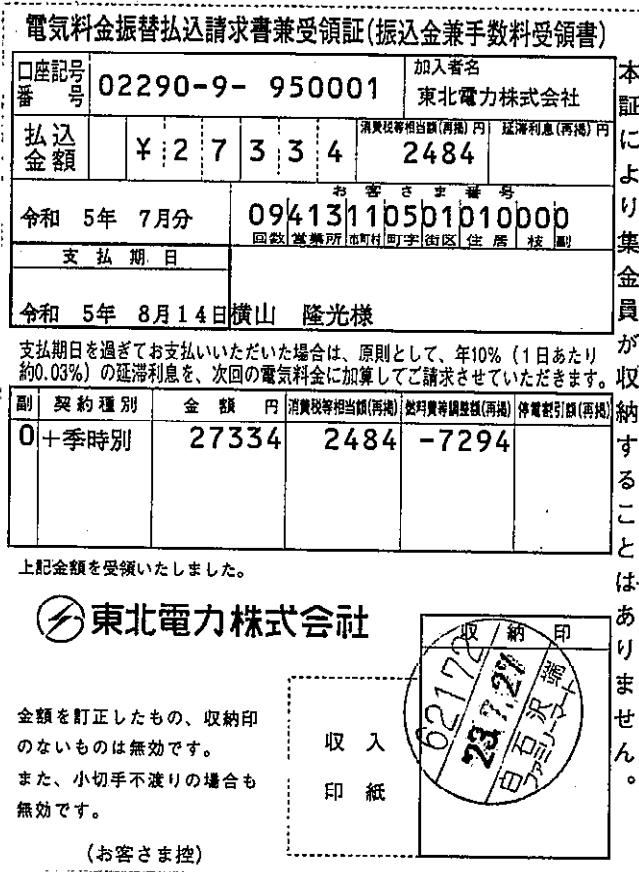 電気料金振替払込請求書兼受領証(振込金兼手数料受領書)
口座記号番号 02290-9- 950001 加入者名 東北電力株式会社
払込金額 ¥27334 消費税等相当額(再掲)円 2484 延滞利息(再掲)円
お客さま番号
令和 5年 7月分 0941311050101000０
回数 営業所 市町村 町字 街区 住居 枝 副
支払期日
令和 5年 8月14日 横山 隆光様
支払期日を過ぎてお支払いいただいた場合は、原則として、年10%(1日あたり
約0.03%)の延滞利息を、次回の電気料金に加算してご請求させていただきます。
副 契約種別 金額 円 消費税等相当額(再掲) 燃料費等調整額(再掲) 停電割引額(再掲)
0 +季時別 27334 2484 -7294
上記金額を受領いたしました。
東北電力株式会社
金額を訂正したもの、収納印
のないものは無効です。
また、小切手不渡りの場合も
無効です。
(お客さま控)
収入
印紙
収納印
62172
23.7.27
白石沢端
ファミリーマート
本証により集金員が収納することはありません。